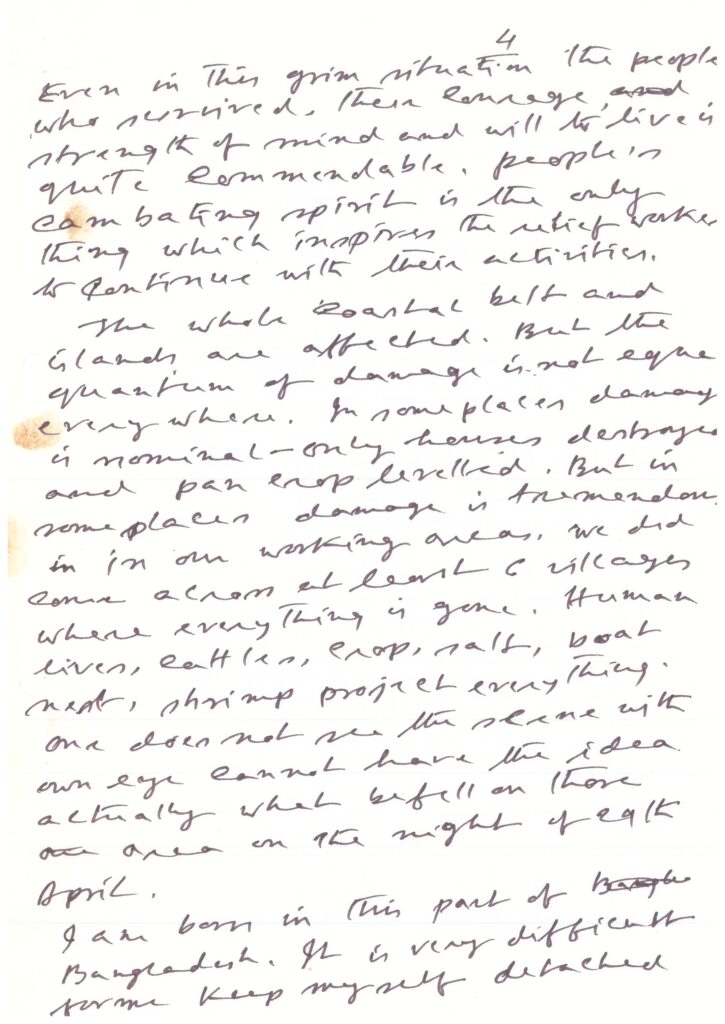 4
Even in this grim situation the people
who survived, their courage, and
strength of mind and will to live is
quite commendable. people's
cambating spirit is the only
thing which inspires the relief worker
to continue with their activities.
The whole coastal belt and
islands are affected. But the
quantum of damage is not eque
everywhere. In some places damag
is nominal - only houses destroye
and pan crop levelled. But in
some places damage is tremendous
in in our working areas, we did
come across at least 6 villages
where everything is gone. Human
lives, cattles, crop, salt, boat
net, shrimp project everything.
one does not see the scene with
own eye cannot have the idea
actually what befell on those
area on the night of 29th
April.
I am born in this part of Bangla
Bangladesh. It is very difficult
for me keep myself detached